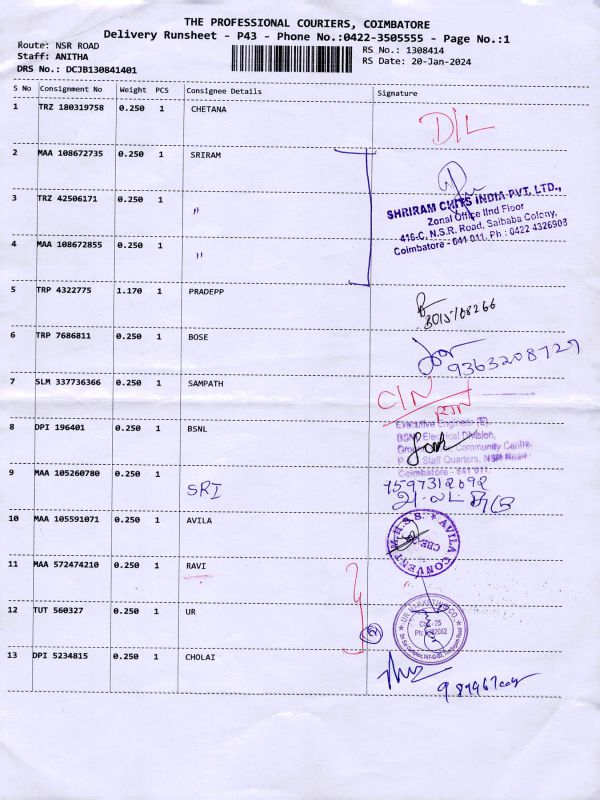 THE PROFESSIONAL COURIERS, COIMBATORE
Delivery Runsheet - P43 - Phone No.:0422-3505555 - Page No.:1
Route: NSR ROAD
Staff: ANITHA
DRS No.: DCJB130841401
RS No.: 1308414
RS Date: 20-Jan-2024
S No Consignment No Weight PCS Consignee Details Signature
1 TRZ 180319758 0.250 1 CHETANA D/L
2 MAA 108672735 0.250 1 SRIRAM
SHRIRAM CHITS INDIA PVT. LTD.,
Zonal Office IInd Floor
416-C, N.S.R. Road, Saibaba Colony,
Coimbatore - 641 011. Ph : 0422 4326903
3 TRZ 42506171 0.250 1 "
4 MAA 108672855 0.250 1 "
5 TRP 4322775 1.170 1 PRADEPP
6 TRP 7686811 0.250 1 BOSE
9363208729
7 SLM 337736366 0.250 1 SAMPATH C/N
RTN
8 DPI 196401 0.250 1 BSNL
Executive Engineer (E)
BSNL Electrical Division,
Community Centre,
Staff Quarters, NSR Road
Coimbatore - 641 011
9 MAA 105260780 0.250 1 SRI
9597312092
10 MAA 105591071 0.250 1 AVILA
AVILA CONVENT M.H.S.S.
CBE-25
11 MAA 572474210 0.250 1 RAVI
12 TUT 560327 0.250 1 UR
UR MARKETING CO.
2
13 DPI 5234815 0.250 1 CHOLAI